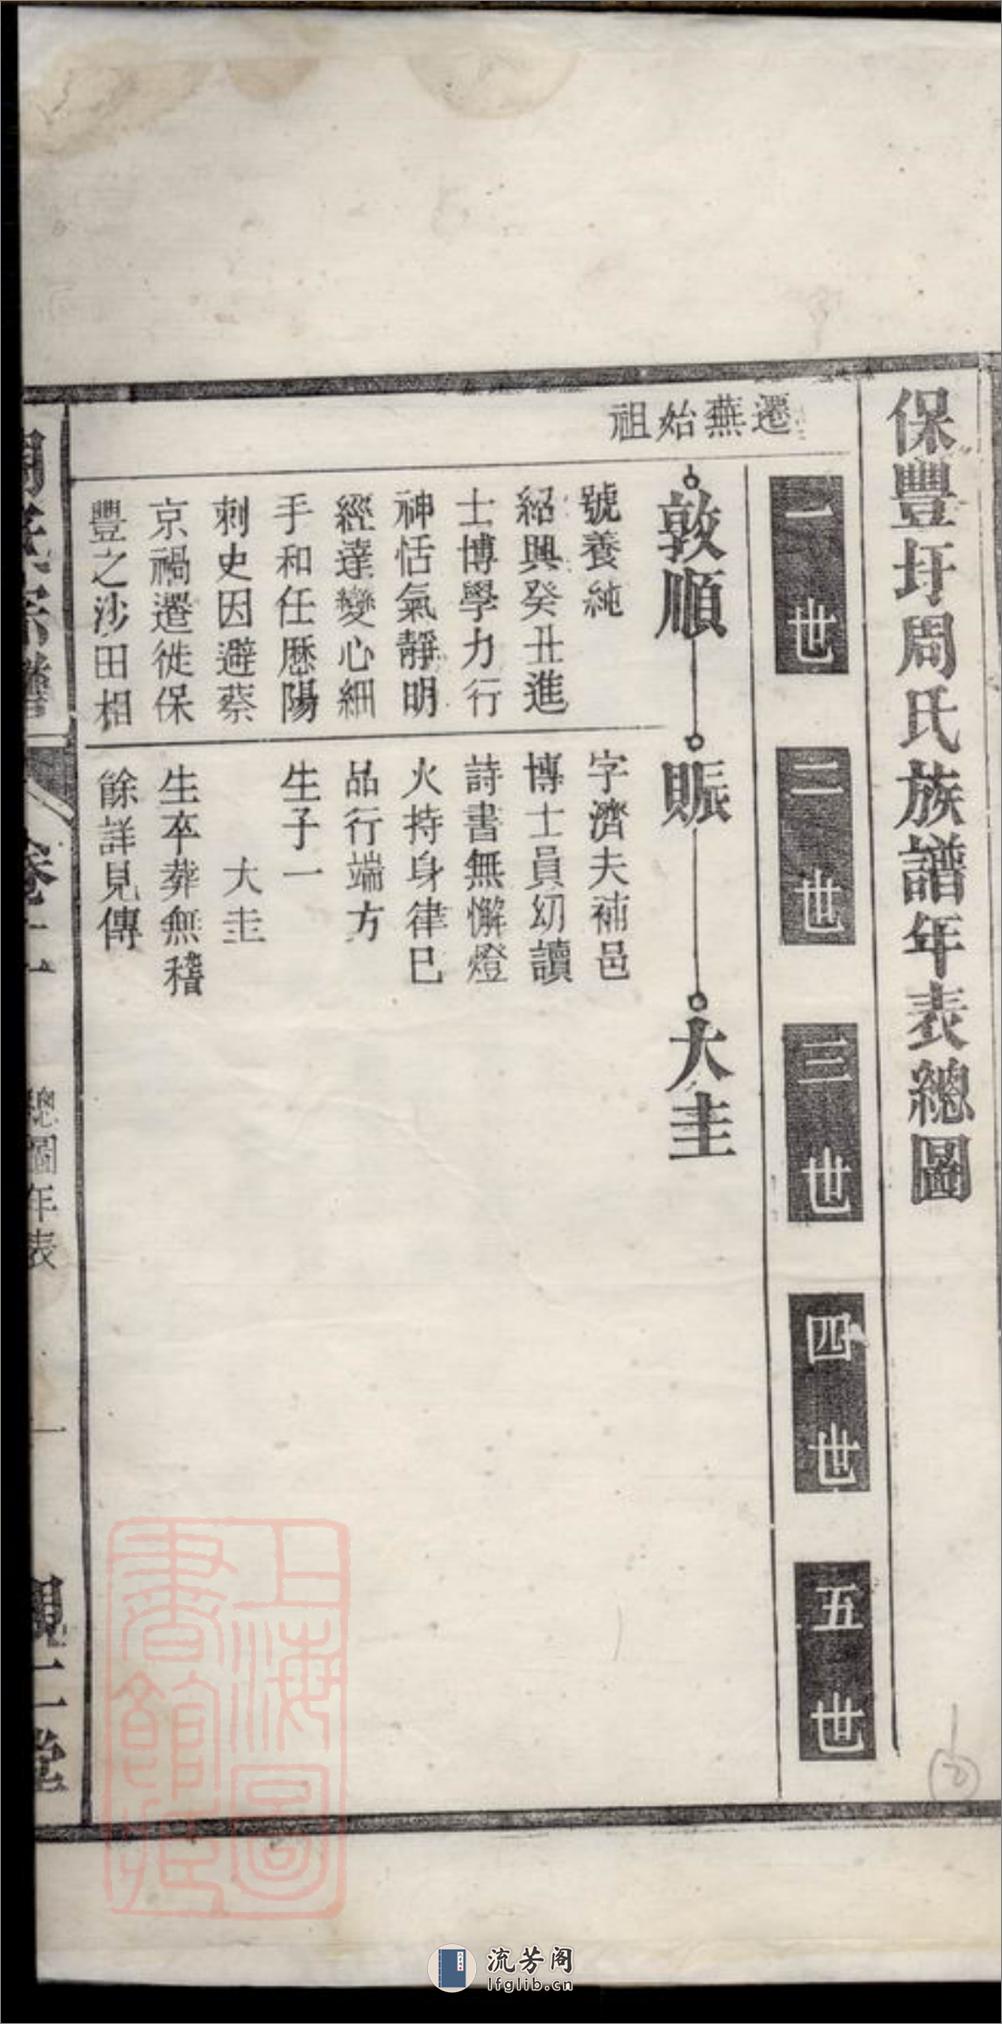 保豐圩周氏族譜年表總圖
一世
二世
三世
四世
五世
遷蕪始祖
敦順
賑
大圭
號養純
紹興癸丑進
士博學力行
神恬氣靜明
經達變心細
手和任歷陽
刺史因避蔡
京禍遷徙保
豐之沙田相
字濟夫補邑
博士員幼讀
詩書無懈燈
火持身律己
品行端方
生子一
大圭
生卒葬無稽
餘詳見傳
周氏宗譜
卷十一
總圖年表
一
上海圖
書館藏
流芳阁
lfglib.cn